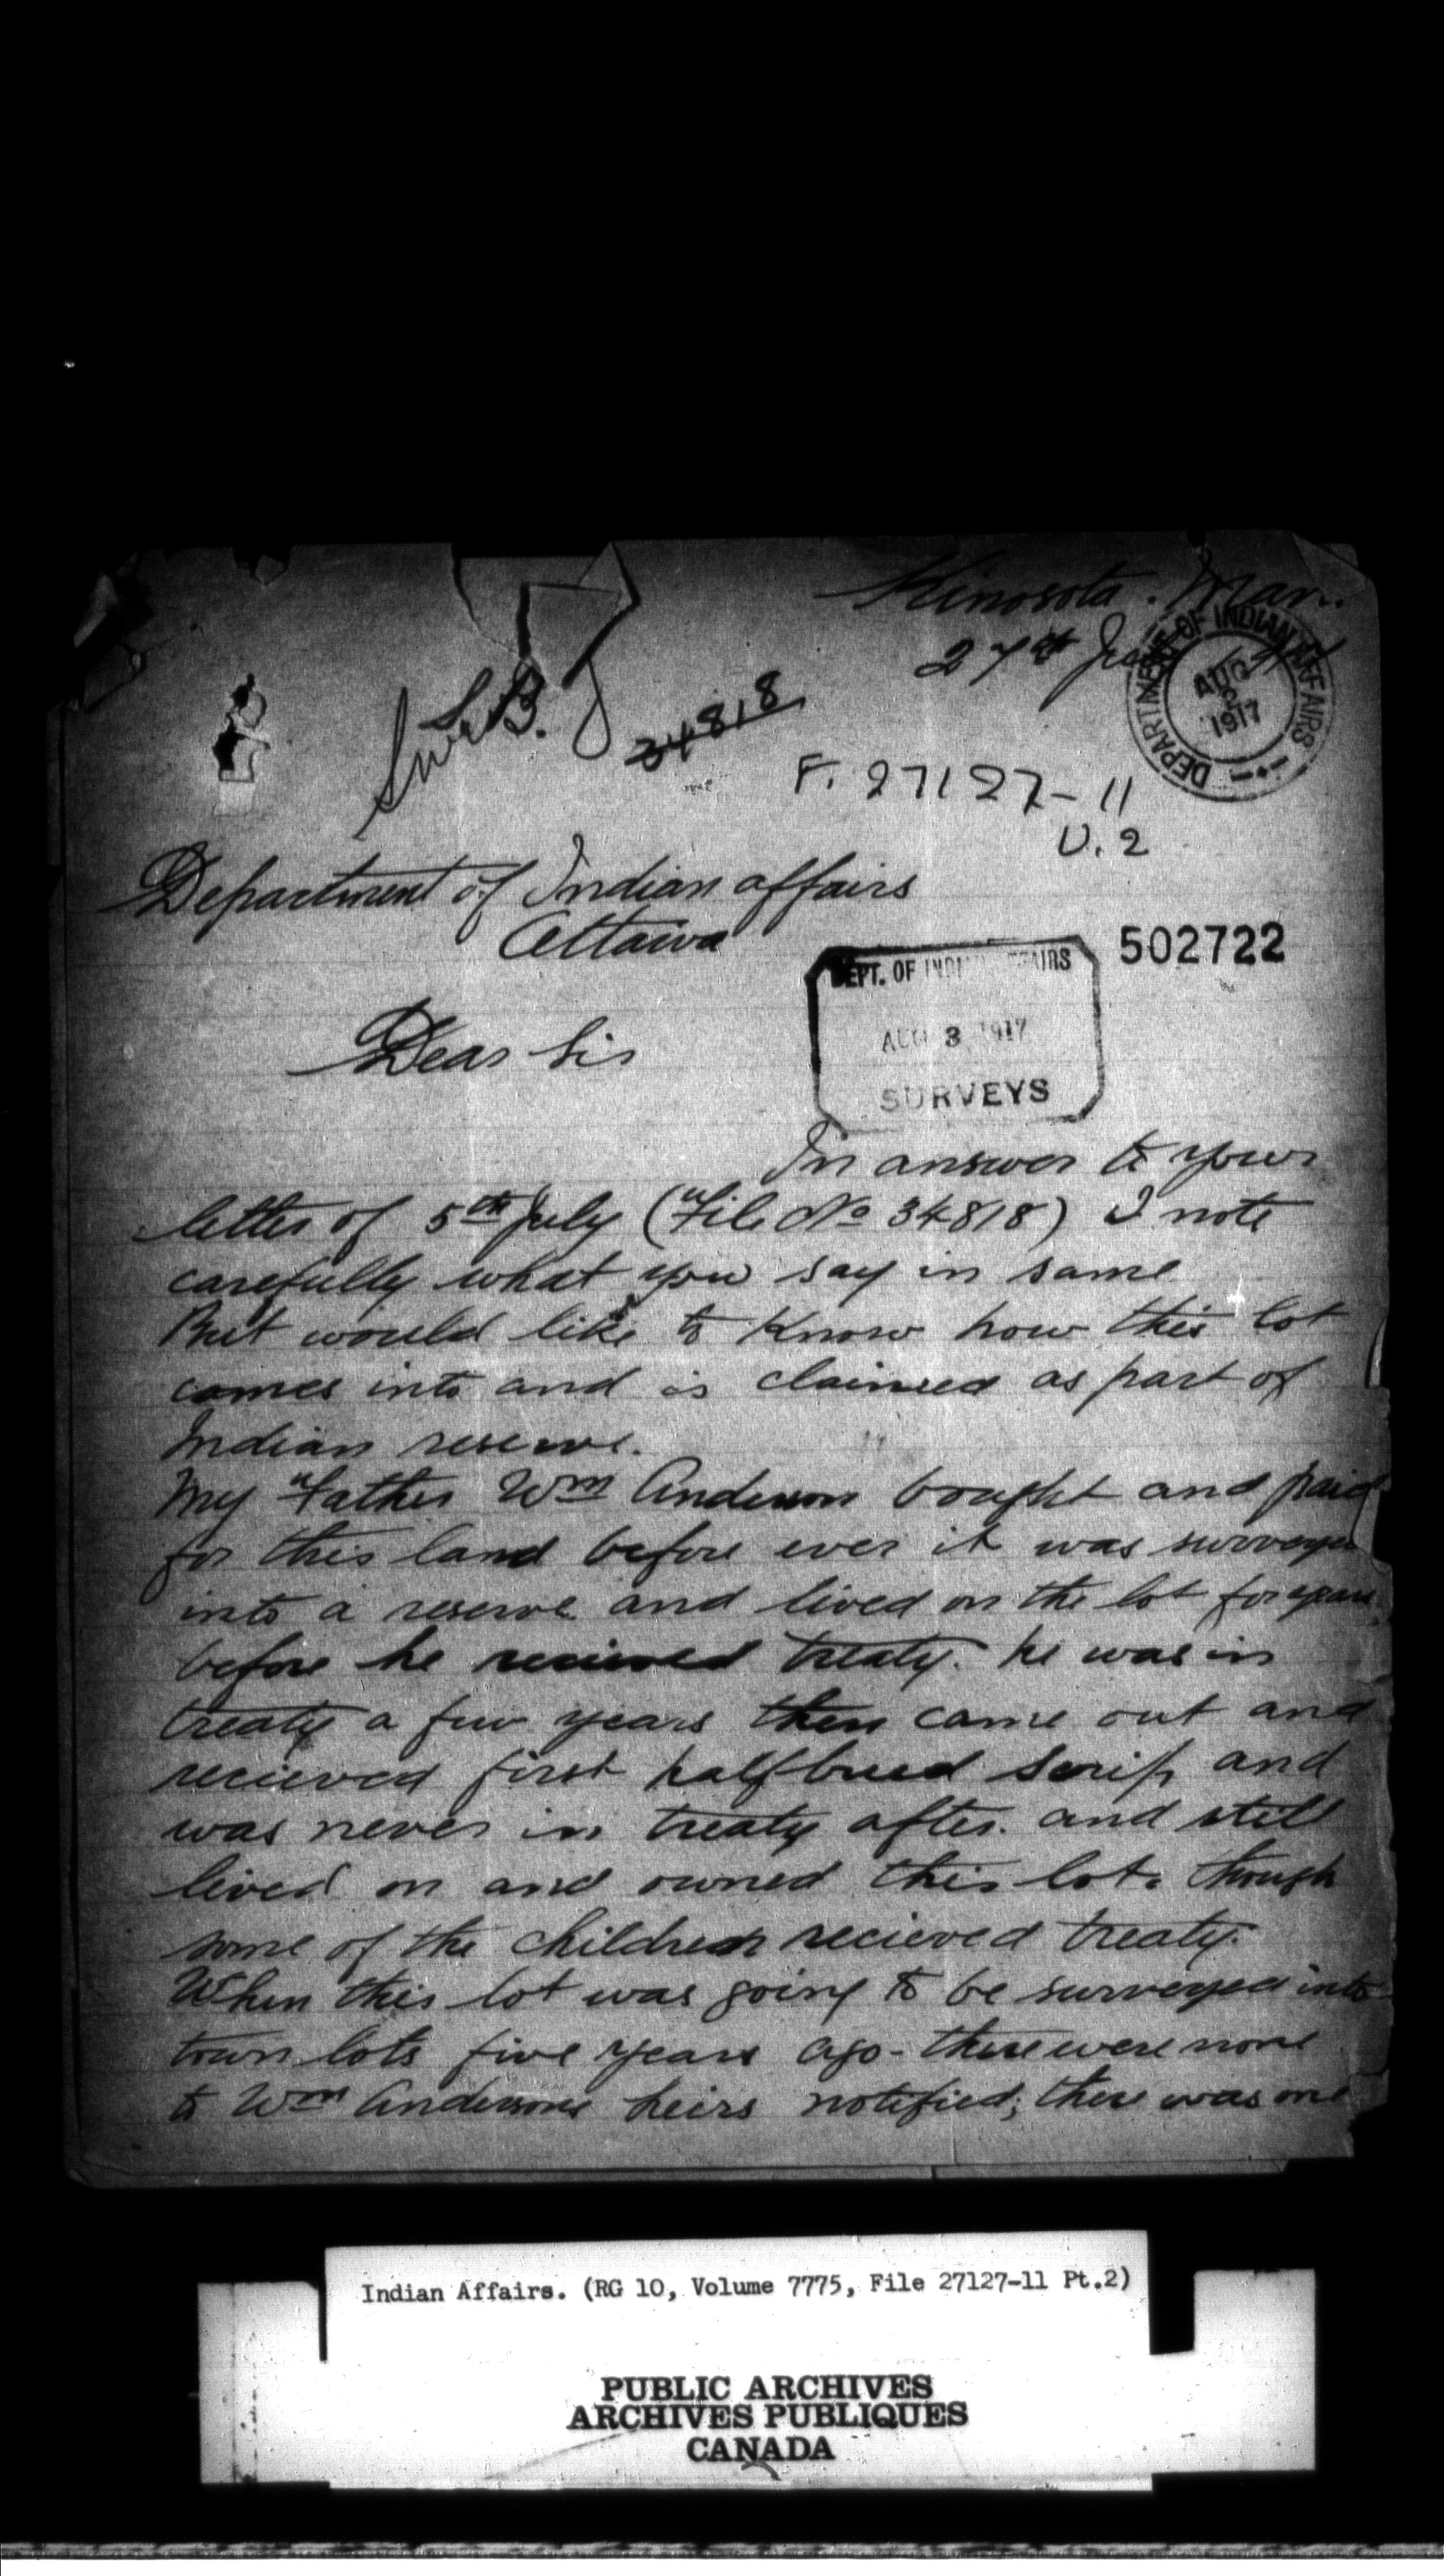 Kinosota. Man.
27th
DEPARTMENT OF INDIAN AFFAIRS
AUG 3 1917
S.B.
34818
F. 27127-11
V. 2
Department of Indian affairs
Ottawa
502722
DEPT. OF INDIAN AFFAIRS
AUG 3 1917
SURVEYS
Dear Sir
In answer to your
letter of 5th July ("File No 34818) I note
carefully what you say in same
But would like to know how this lot
comes into and is claimed as part of
Indian reserve.
My Father Wm Anderson bought and paid
for this land before ever it was surveyed
into a reserve and lived on the lot for years
before he recieved treaty. he was in
treaty a few years then came out and
recieved first halfbreed scrip and
was never in treaty after. and still
lived on and owned this lot. though
some of the children recieved treaty.
When this lot was going to be surveyed into
town lots five years ago - there were none
to Wm Andersons heirs notified; there was one
Indian Affairs. (RG 10, Volume 7775, File 27127-11 Pt.2)
PUBLIC ARCHIVES
ARCHIVES PUBLIQUES
CANADA